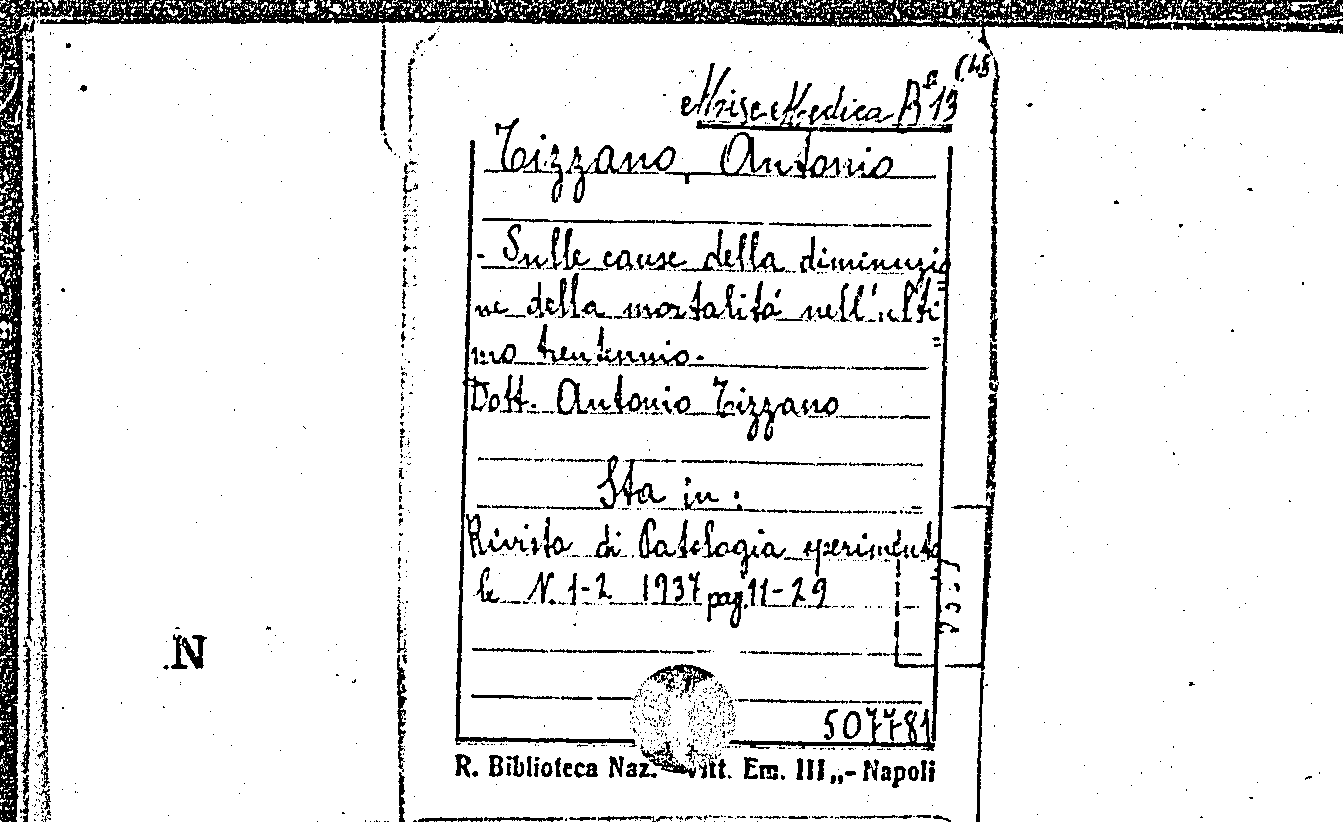 Misc. Medica B 13 (45
Tizzano, Antonio
- Sulle cause della diminuzio
ne della mortalitá nell'ulti=
mo trentennio.-
Dott. Antonio Tizzano
Sta in :
Rivista di Patologia sperimenta
le N. 1-2 1937 pag. 11-29
N
507781
R. Biblioteca Naz. Vitt. Em. III„- Napoli